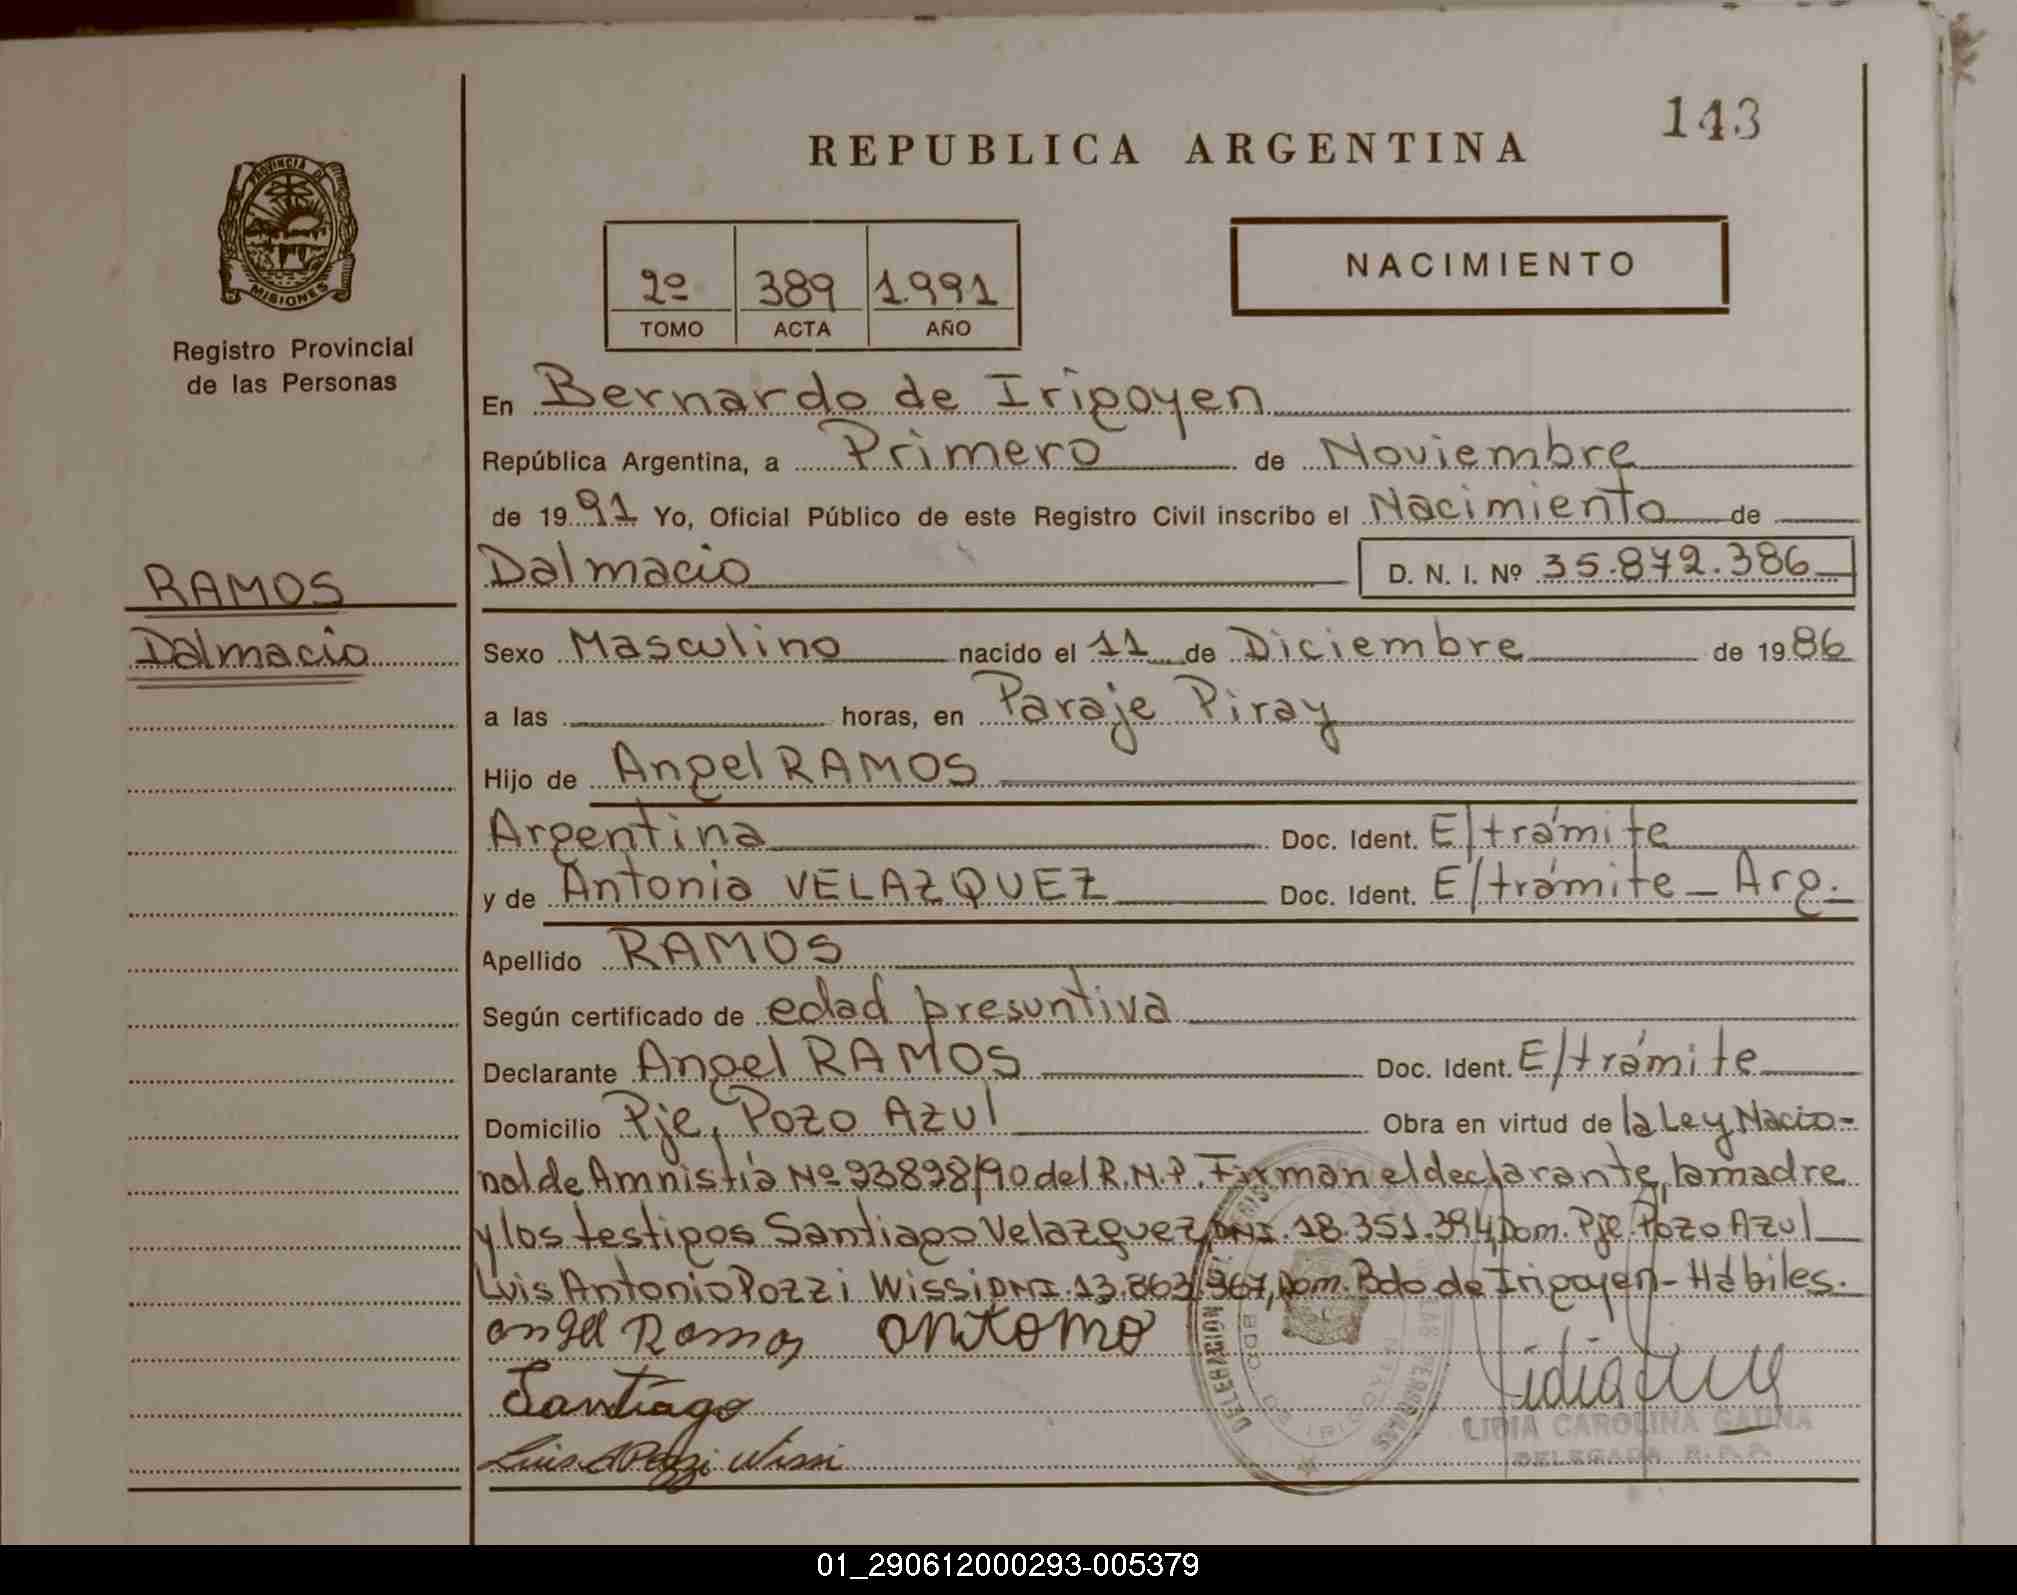 143
REPUBLICA ARGENTINA
PROVINCIA DE
MISIONES
Registro Provincial
de las Personas
2º 389 1.991
TOMO ACTA AÑO
NACIMIENTO
En Bernardo de Irigoyen
República Argentina, a Primero de Noviembre
de 1991 Yo, Oficial Público de este Registro Civil inscribo el Nacimiento de
Dalmacio D. N. I. Nº 35.872.386
RAMOS
Dalmacio
Sexo Masculino nacido el 11 de Diciembre de 1986
a las horas, en Paraje Piray
Hijo de Angel RAMOS
Argentina Doc. Ident. E/trámite
y de Antonia VELAZQUEZ Doc. Ident. E/trámite - Arg.
Apellido RAMOS
Según certificado de edad presuntiva
Declarante Angel RAMOS Doc. Ident. E/trámite
Domicilio Pje, Pozo Azul Obra en virtud de la Ley Nacio-
nal de Amnistia Nº 23898/90 del R.N.P. Firman el declarante, la madre
y los testigos Santiago Velazquez, DNI. 18.351.394, Dom. Pje Pozo Azul
Luis Antonio Pozzi Wissi DNI. 13.863.967, Dom. Bdo de Irigoyen - Hábiles.
angel Ramos antomo
Santiago
Luis A Pozzi Wissi
LIDIA CAROLINA
DELEGADA R.P.P.
BDO. DE IRIGOYEN
01_290612000293-005379